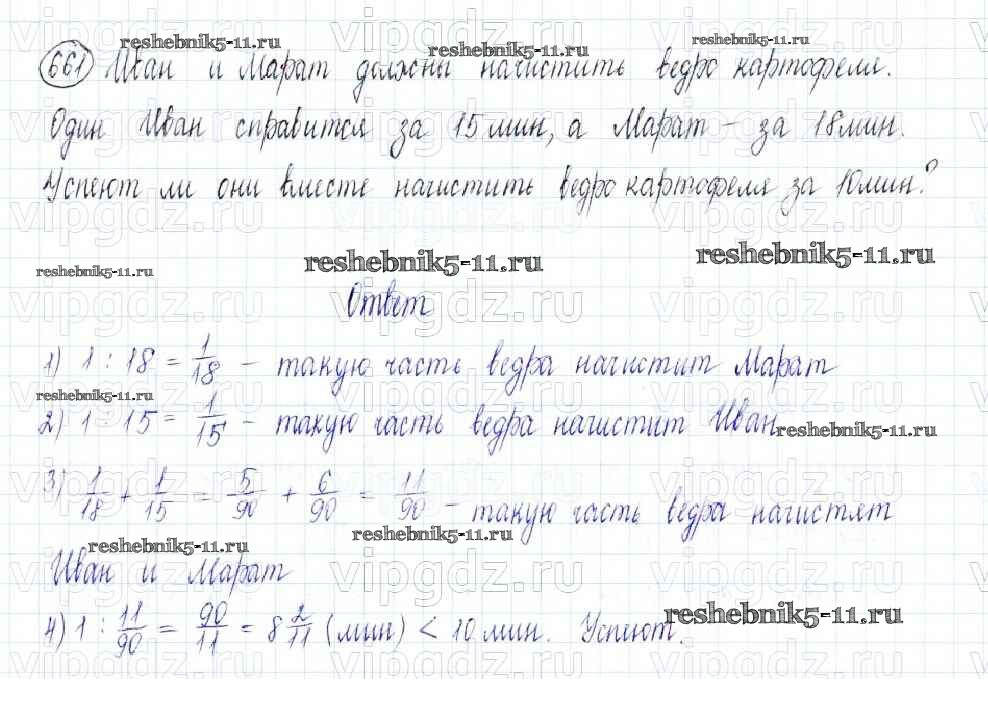 reshebnik5-11.ru reshebnik5-11.ru reshebnik5-11.ru
661 Иван и Марат должны начистить ведро картофеля.
Один Иван справится за 15 мин, а Марат – за 18 мин.
Успеют ли они вместе начистить ведро картофеля за 10 мин?
reshebnik5-11.ru reshebnik5-11.ru reshebnik5-11.ru
vipgdz.ru vipgdz.ru vipgdz.ru
Ответ
1) 1 : 18 = 1/18 – такую часть ведра начистит Марат
reshebnik5-11.ru
2) 1 : 15 = 1/15 – такую часть ведра начистит Иван
reshebnik5-11.ru
3) 1/18 + 1/15 = 5/90 + 6/90 = 11/90 – такую часть ведра начистят
reshebnik5-11.ru reshebnik5-11.ru
Иван и Марат
vipgdz.ru vipgdz.ru vipgdz.ru
4) 1 : 11/90 = 90/11 = 8 2/11 (мин) < 10 мин. Успеют.
reshebnik5-11.ru